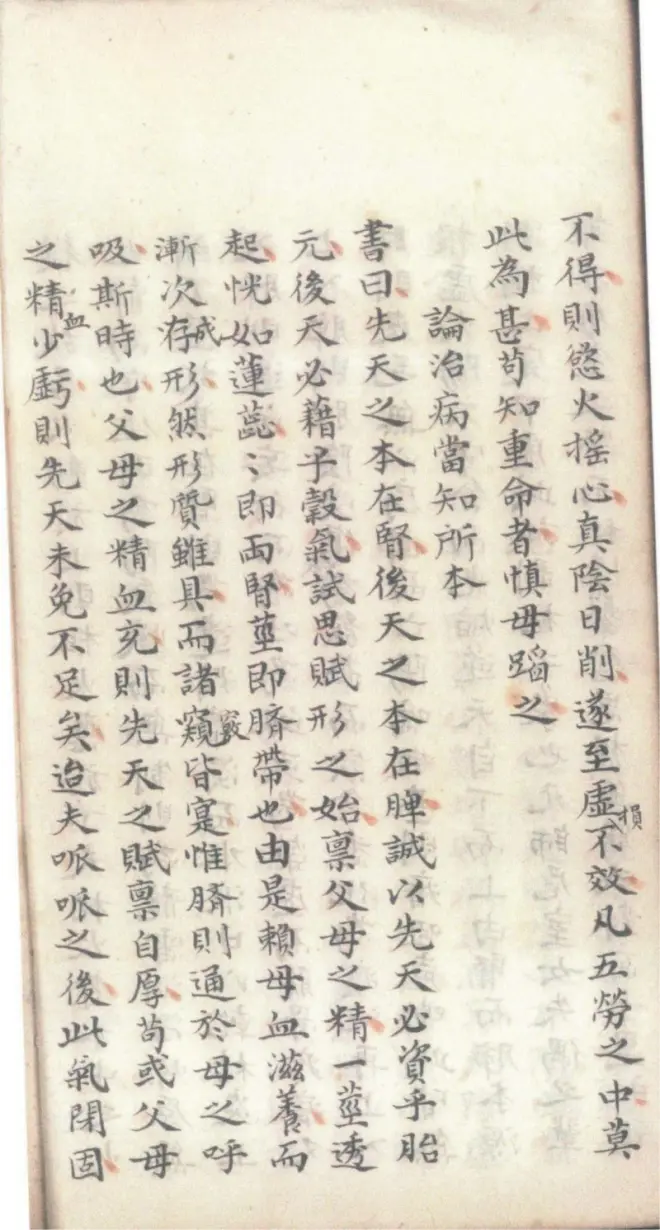 不得則慾火搖心真陰日削遂至虛損不效凡五勞之中莫
此為甚苟知重命者慎毋蹈之
論治病當知所本
書曰先天之本在腎後天之本在脾誠以先天必資乎胎
元後天必藉乎穀氣試思賦形之始禀父母之精一莖透
起恍如蓮蕋〻即両腎莖即臍帶也由是賴母血滋養而
漸次成存形然形質雖具而諸竅窺皆寔惟臍則通於母之呼
吸斯時也父母之精血充則先天之賦禀自厚苟或父母
之精血少虧則先天未免不足矣迨夫哌哌之後此氣閉固